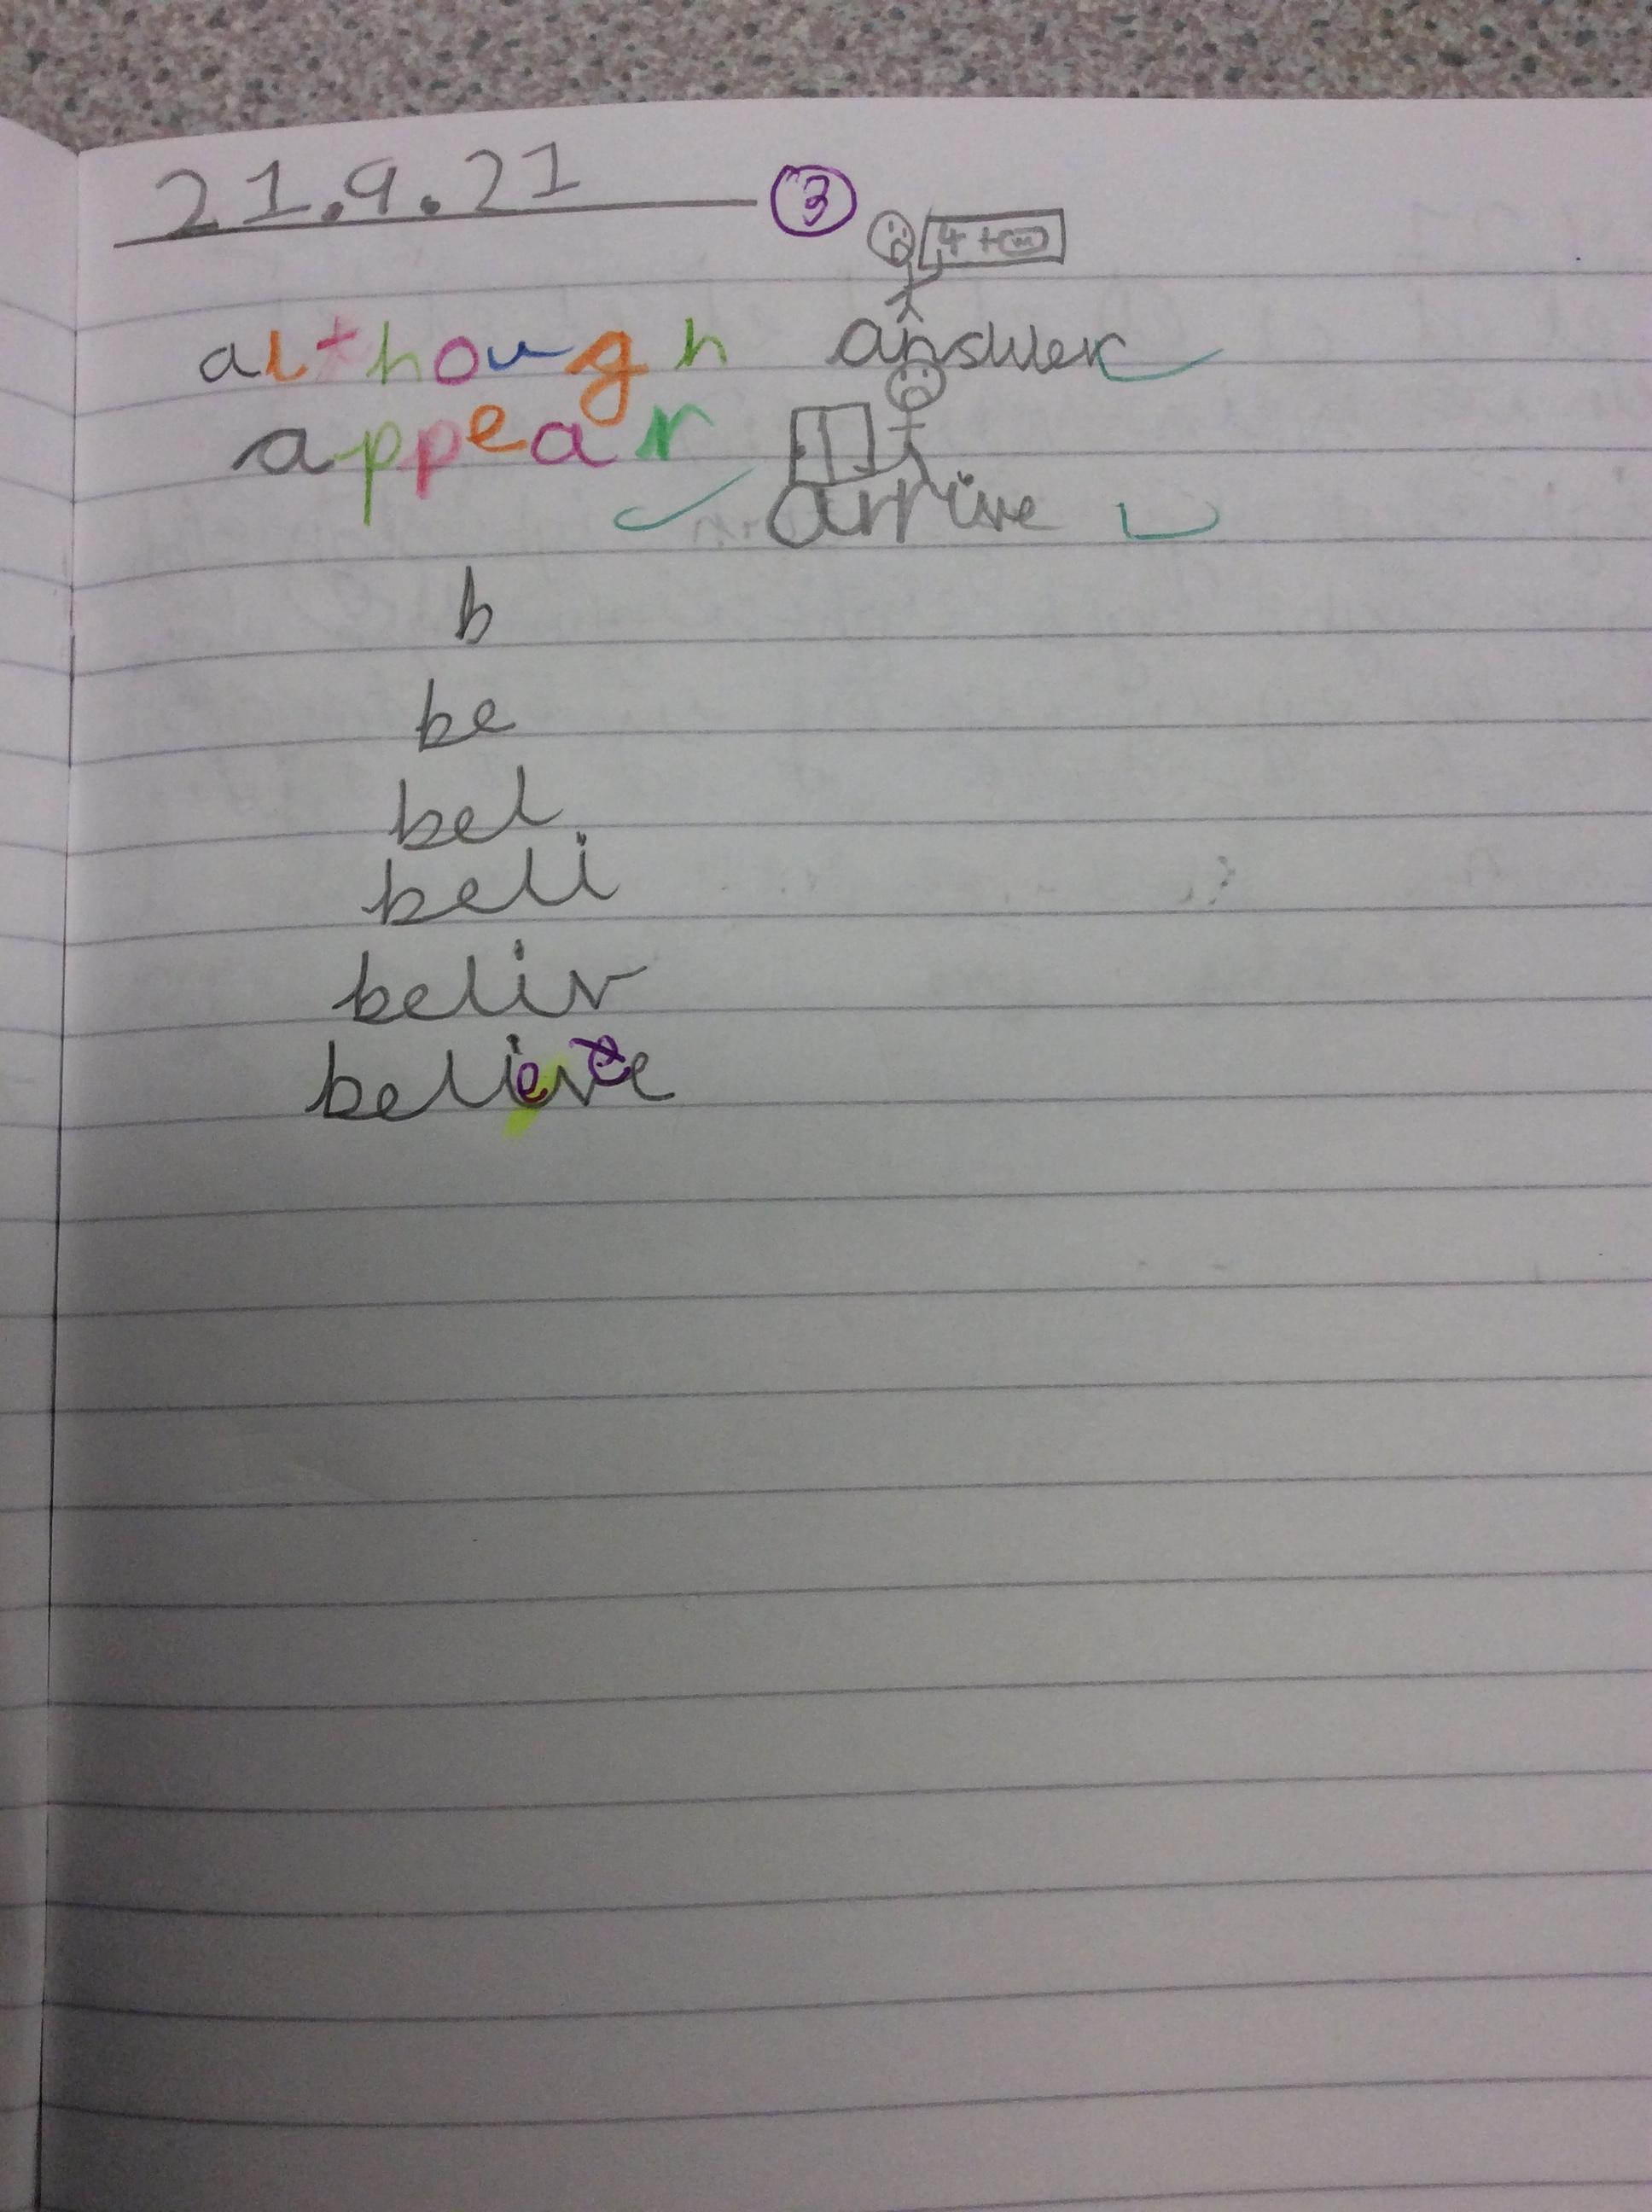 21.9.21 3
4+
although answer
appear arrive
b
be
bel
beli
beliv
believe